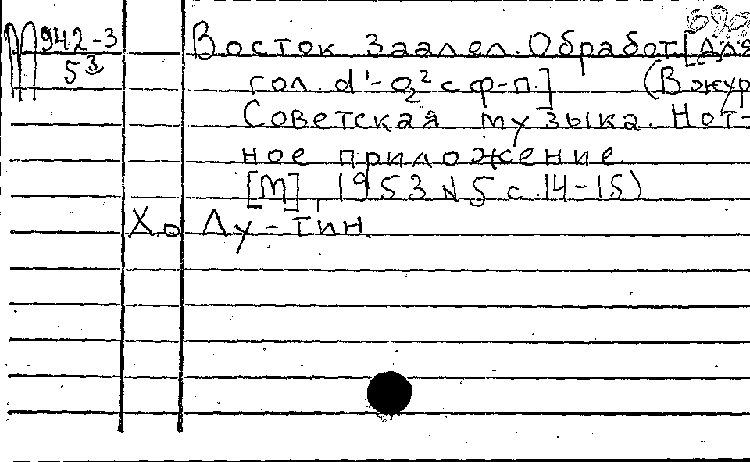 М 942-3 Восток заалел. Обработ. [для
5³ гол. d¹-g² с ф-п.] (В жур
Советская музыка. Нот-
ное приложение
[М], 1953 № 5 с. 14-15)
Хо Лу-Тин